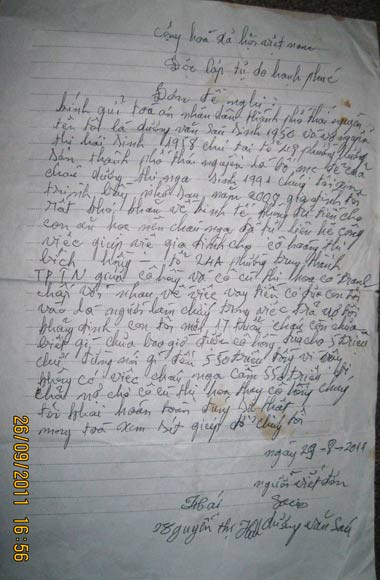 Cộng hoà xã hội việt nam
Độc lập tự do hạnh phúc
Đơn đề nghị:
kính gửi toà án nhân dân thành phố thái nguyên
tên tôi là dương văn Sáu Sinh 1956 và vợ nguyễn
thị hái Sinh 1958 chú tại tổ
Sơn, thành phố thái nguyên là bố mẹ đẻ của
cháu dương thị nga sinh 1991 chúng tôi xin
trình bày như sau. năm 2008 gia đình tôi
rất khó khăn về kinh tế không đủ tiền cho
con ăn học nên cháu nga đã tự liên hệ công
việc giúp việc gia đình cho cô hoàng thị
bích hồng - tổ 24A phường trung thành
TPTN giữa cô hồng và cô cù thị hoa có tranh
chấp với nhau về việc vay tiền cô đưa con tôi
vào là người làm chứng trong việc đó vợ tôi
khẳng định con tôi mới 17 tuổi cháu còn chưa
biết gì chưa bao giờ được cô hồng đưa cho 5 triệu
chứ đừng nói gì đến 550 triệu đồng vì vậy
không có việc cháu nga cầm 550 triệu đi
trả nợ cho cô cù thị hoa thay cô hồng chúng
tôi khai hoàn toàn đúng sự thật
mong toà xem xét giúp đỡ chúng tôi
ngày 29-8-2011
người viết đơn
Hái Sáu
nguyễn thị Hái dương văn Sáu
26/09/2011 16:56